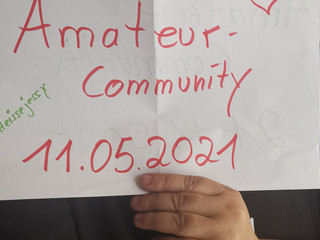 Amateur-
Community
Heissejessy
11.05.2021